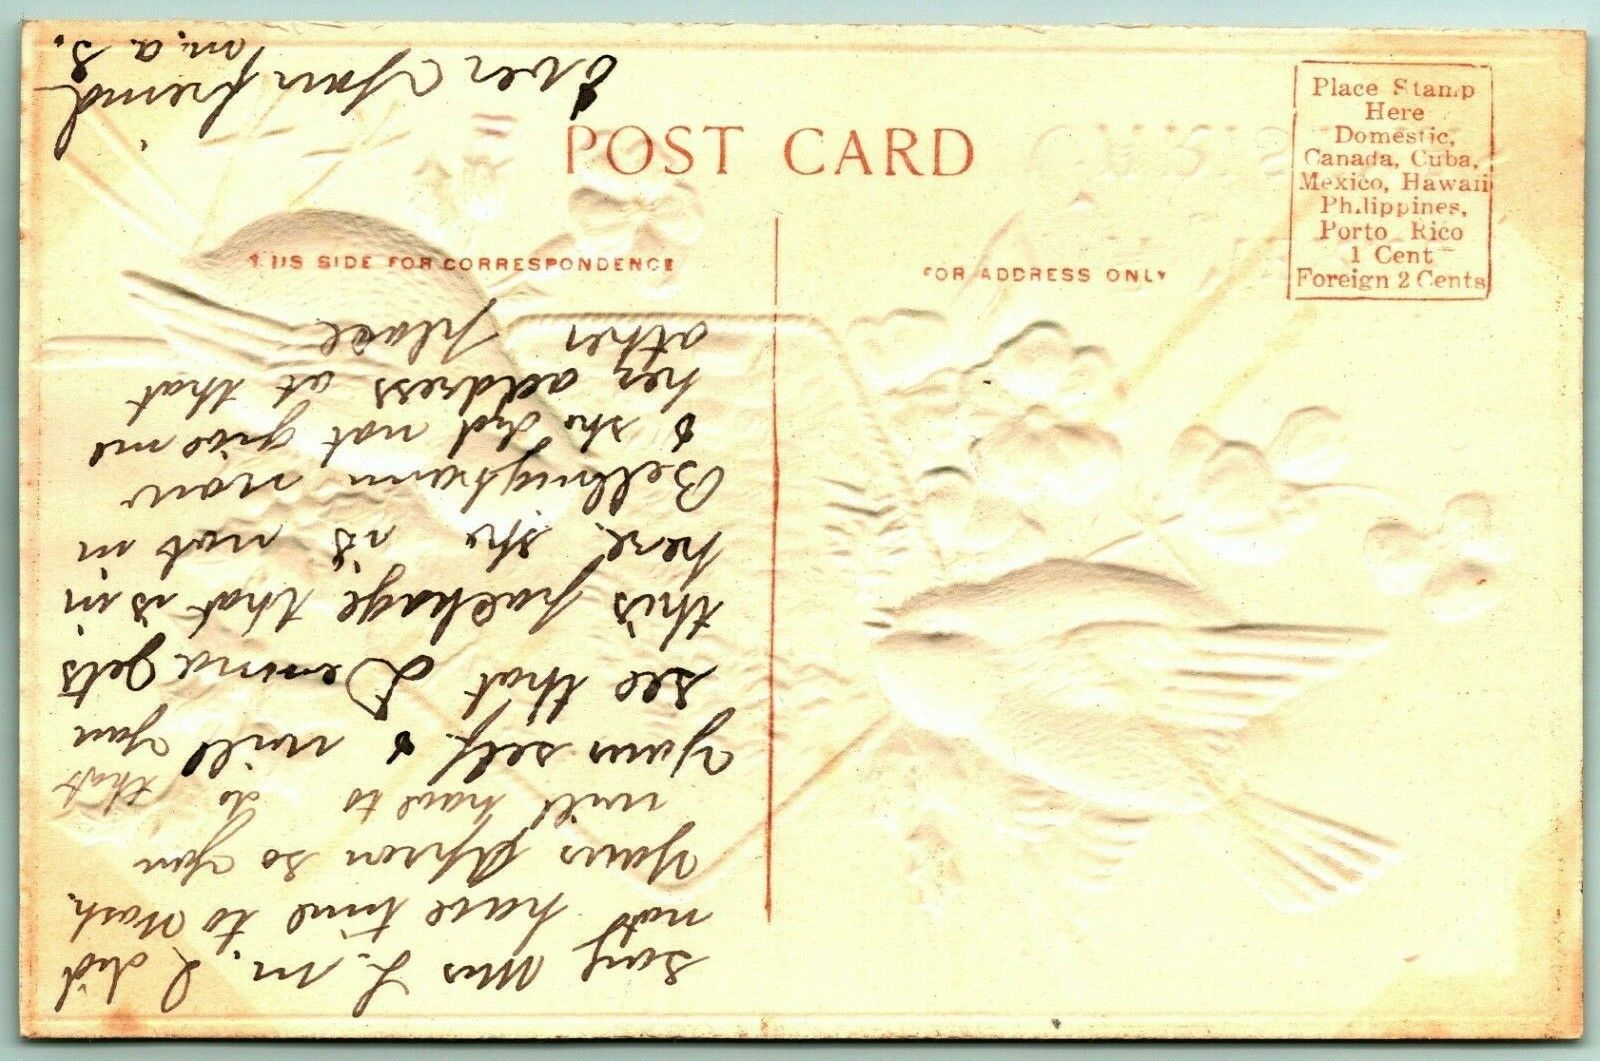 POST CARD
THIS SIDE FOR CORRESPONDENCE
FOR ADDRESS ONLY
Place Stamp
Here
Domestic,
Canada, Cuba,
Mexico, Hawaii
Philippines,
Porto Rico
1 Cent
Foreign 2 Cents
Say Mrs L. M. I did
not have time to Wash.
Yours Apron so you
will have to do that
Yours self & will you
see that Lemma gets
this package that is in
here. she is not in
Bellingham now
& she did not give me
her address at that
other place
Ever Your friend
M. A. S.